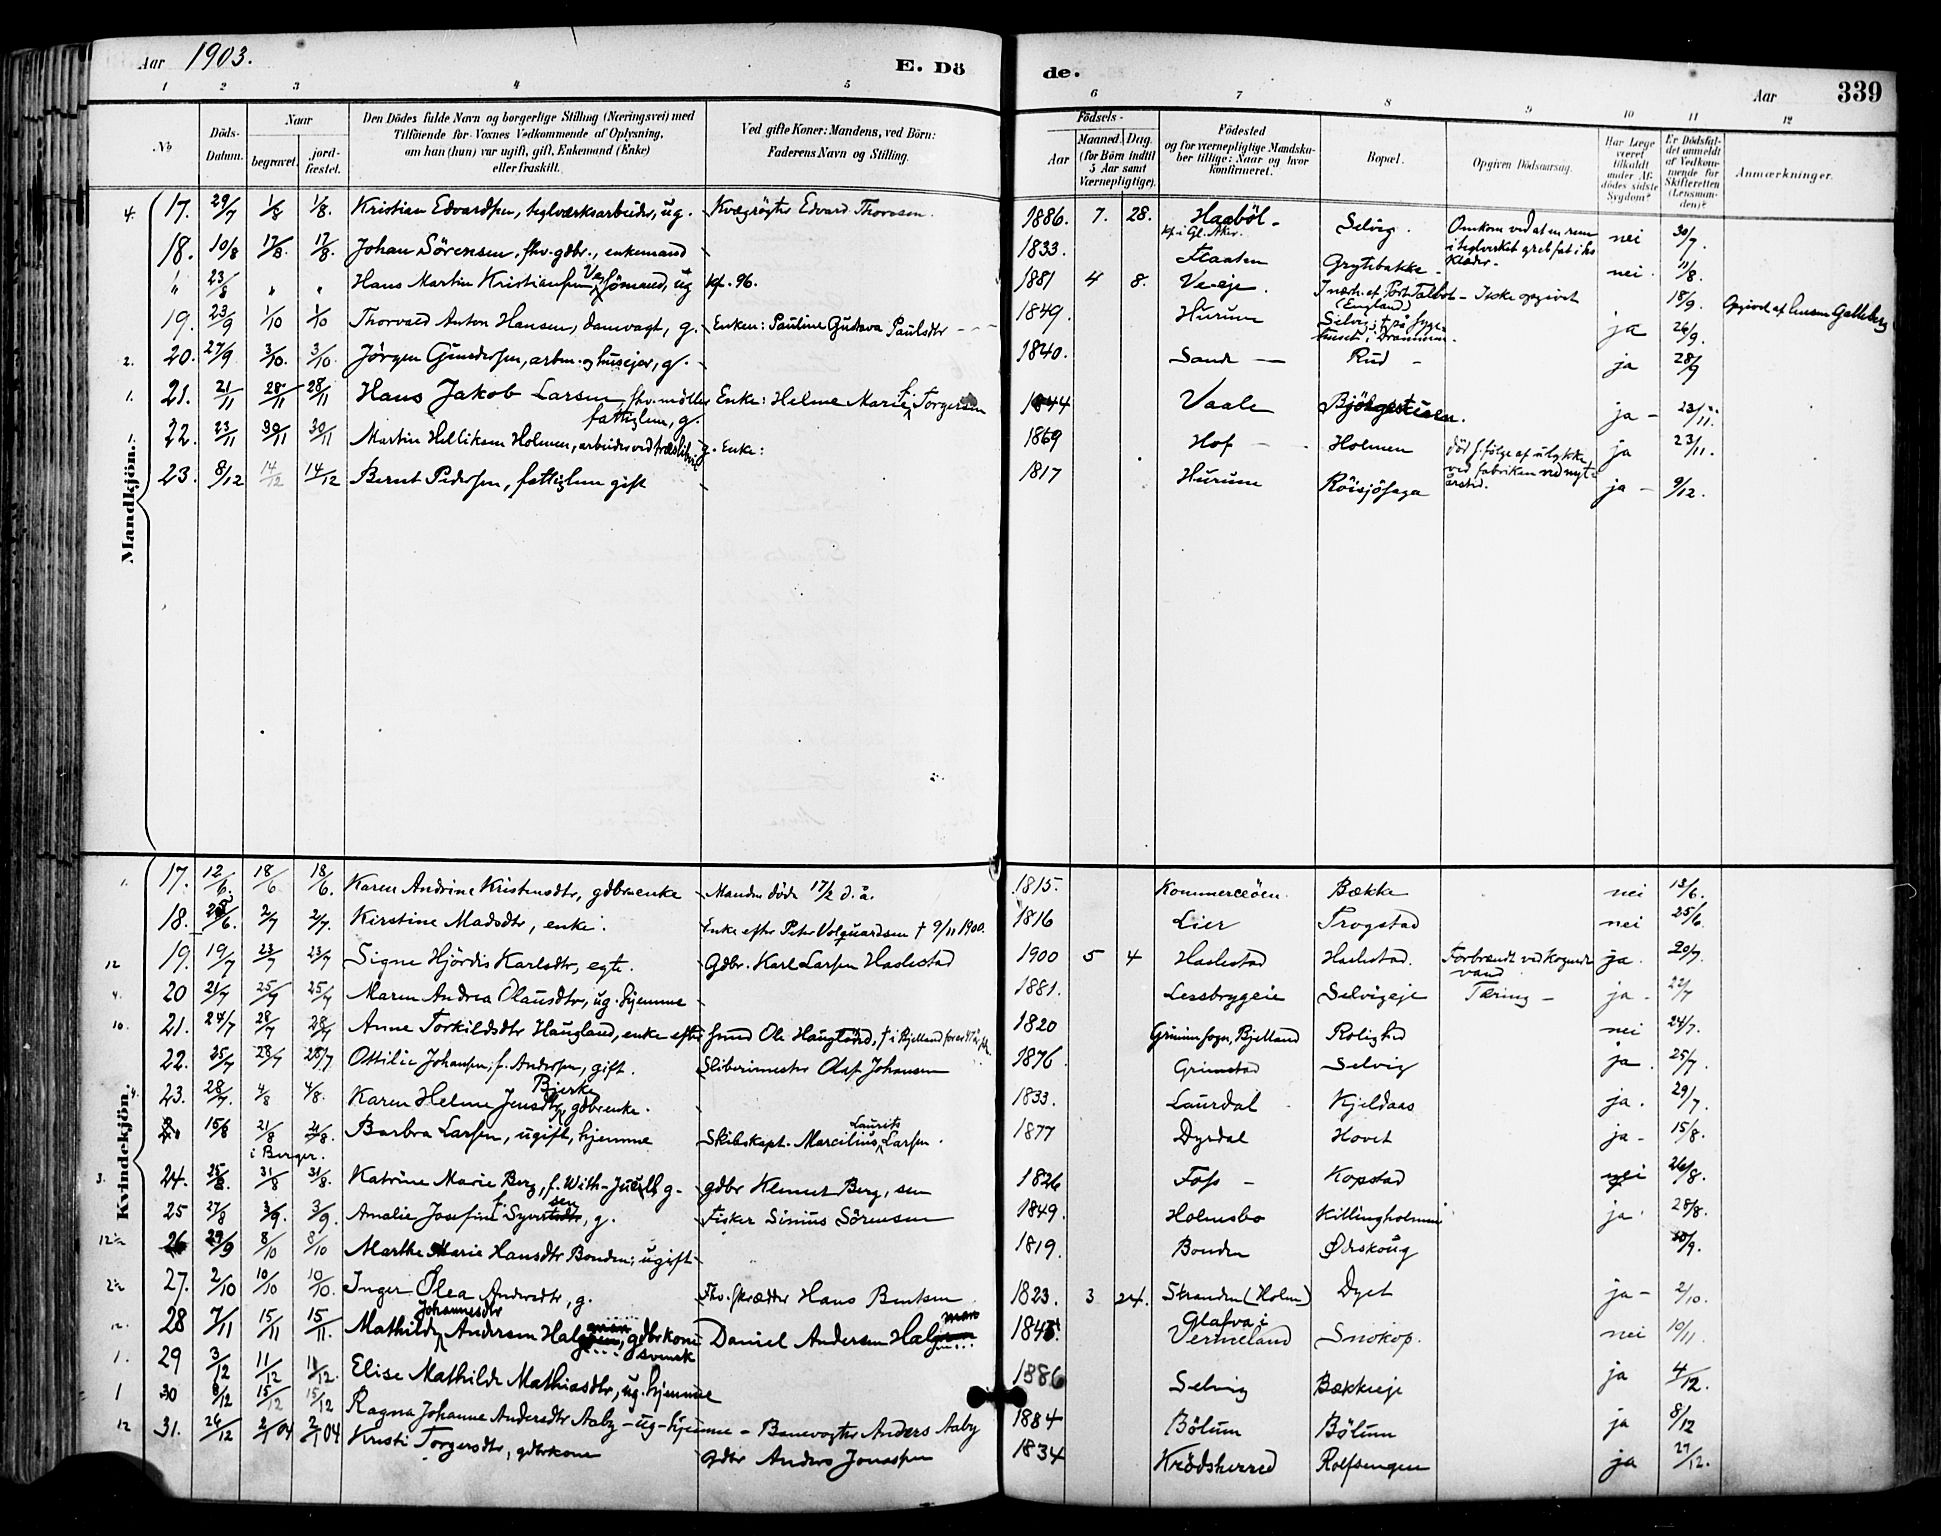 Aar 1903.
E. Dö
de.
Aar
339
1 2 3 4 5 6 7 8 9 10 11 12
No
Döds-Datum.
Naar
begravet.
jord-fæstet.
Den Dödes fulde Navn og borgerlige Stilling (Næringsvei) med
Tilföiende for Voxnes Vedkommende af Oplysning,
om han (hun) var ugift, gift, Enkemand (Enke)
eller fraskilt.
Ved gifte Koner: Mandens, ved Börn:
Faderens Navn og Stilling.
Födsels-
Aar
Maaned. Dag.
(for Börn indtil
5 Aar samt
Værnepligtige).
Födested
og for værnepligtige Mandska-
ber tillige: Naar og hvor
konfirmeret.
Bopæl.
Opgiven Dödsaarsag.
Har Læge
været
tilkaldt
under Af-
dödes sidste
Sygdom?
Er Dödsfal-
det anmeldt
af Vedkom-
mende for
Skifteretten
(Lensman-
den)?
Anmærkninger.
Mandkjön.
4. 17. 29/7 1/8 1/8. Kristian Edvardsen, teglværksarbeider, ug. Kvægrögter Edvard Thorvsen. 1886. 7. 28. Haaböl - kf. i Gl. Aker. Selvig. Omkom ved at en rem i teglverket greb fat i hs klæder. nei 30/7.
18. 10/8 17/8. 17/8. Johan Sörensen, fhv. gdbr., enkemand 1833. Staaten Grytebakke - nei. 11/8.
" 23/8 " " Hans Martin Kristiansen Veg, sömand, ug kf. 96. 1881 4 8. Veeje. I nærh. af Port Talbot (England) - Ikke opgivet 18/9. Opgivet af lensm Galleberg
19. 23/9 1/10 1/10 Thorvald Anton Hansen, damvagt, g. Enken: Pauline Gustava Paulsdtr 1849. Hurum Selvig, † på syge-huset i Drammen. ja 26/9.
2. 20. 27/9 3/10. 3/10 Jörgen Gundersen, arbm. og husejer, g. 1840. Sande Rud - ja 28/9
1. 21. 21/11 28/11 28/11 Hans Jakob Larsen fhv. möller fattiglem, g. Enke: Helene Marie f. Torgersen 1844 Vaale Björgestuen. ja - 23/11.
1. 22. 23/11 30/11 30/11 Martin Helliksen Holmen, arbeider ved træsliberi g. Enke: 1869 Hof - Holmen död f. fölge af ulykke ved fabriken ved nyt-årstid. ja 23/11.
23. 8/12 14/12 14/12 Bernt Pedersen, fattiglem gift 1817 Hurum Röisjösaga ja - 9/12.
Kvindekjön.
1. 17. 12/6. 18/6 18/6. Karen Andrine Kristensdtr, gdbrenke Manden döde 17/2 d. å. 1815. Kommerceöen Bække nei 13/6.
18. 25/6. 2/7 2/7. Kirstine Madsdtr, enke. Enke efter Peter Volquardsen † 9/11 1900. 1816 Lier Trogstad nei 25/6
12 19. 19/7 23/7 23/7 Signe Hjördis Karlsdtr, egte. Gdbr. Karl Larsen Haslestad 1900 5 4 Haslestad Haslestad. Forbrændt ved kogende vand ja. 20/7.
4. 20 21/7 25/7 25/7 Maren Andrea Olausdtr, ug. hjemme 1881. Lessbryggeie Selvigeje Tæring - ja - 22/7
10. 21. 24/7 28/7 28/7 Anne Torkildsdtr Haugland, enke efter Gmd Ole Haugland, † i Bjelland 1820 Grindum sogn, Bjelland Rolighed nei 24/7.
22. 25/7 28/7 28/7 Ottilie Johansen, f. Andersen, gift. Sliberimester Olaf Johansen 1876. Grimstad Selvig ja. 25/7.
4. 23. 28/7. 4/8 4/8. Karen Helene Jensdtr Bjerke, gdbrenke. 1833. Laurdal - Kjeldaas ja. 29/7.
15/8 21/8 21/8. Barbra Larsen, ugift, hjemme Skibskapt. Marcilius Laurits Larsen. 1877 Dyrdal Hovet ja - 15/8.
i Berger.
3. 24. 25/8. 31/8 31/8. Katrine Marie Berg, f. With-Juell, g. gdbr Klemet Berg, sen 1826 Foss - Kopstad nei 26/8.
25 27/8 3/9. 3/9. Amalie Josefine f. Syversen, g. Fisker Sinius Sörensen 1849. Holmsbo Killingholmen ja. 28/8.
12 26 29/9 8/10 8/10 Marthe Marie Hansdtr Bonden, ugift 1819. Bonden Ødeskoug 30/9.
2 27. 2/10 10/10 10/10. Inger Ölea Andersdtr, g. Fhv. skrædder Hans Bentsen 1823. 3 24. Stranden (Holm) Dyet ja - 2/10.
12. 28 7/11 15/11 15/11. Mathilde Johannesdtr Andersen Halgman, gdbrkone svensk Daniel Andersen Halgman 1845 Glafva i Vermeland Snekop. nei 10/11
1. 29 3/12 11/12 11/12. Elise Mathilde Mathiasdtr, ug. hjemme 1886 Selvig Bækkeeje ja 4/12.
1 30 8/12 15/12 15/12 Ragna Johanne Andersdtr Aaby - ug - hjemme - Banevogter Anders Aaby 1884 Bölum Bölum ja 8/12
12 31. 26/12 2/1 04 2/1 04 Kristi Torgersdtr, gdbrkone Gdbr Anders Jonassen 1834 Krödsherred Rolfsengen ja 27/12.